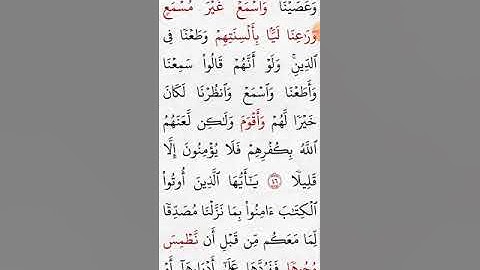 وَعَصَيْنَا وَٱسْمَعْ غَيْرَ مُسْمَعٍ
وَرَٰعِنَا لَيًّۢا بِأَلْسِنَتِهِمْ وَطَعْنًا فِى
ٱلدِّينِ ۚ وَلَوْ أَنَّهُمْ قَالُوا۟ سَمِعْنَا
وَأَطَعْنَا وَٱسْمَعْ وَٱنظُرْنَا لَكَانَ
خَيْرًا لَّهُمْ وَأَقْوَمَ وَلَٰكِن لَّعَنَهُمُ
ٱللَّهُ بِكُفْرِهِمْ فَلَا يُؤْمِنُونَ إِلَّا
قَلِيلًا ٤٦ يَٰٓأَيُّهَا ٱلَّذِينَ أُوتُوا۟
ٱلْكِتَٰبَ ءَامِنُوا۟ بِمَا نَزَّلْنَا مُصَدِّقًا
لِّمَا مَعَكُم مِّن قَبْلِ أَن نَّطْمِسَ
وُجُوهًا فَنَرُدَّهَا عَلَىٰٓ أَدْبَارِهَآ أَوْ